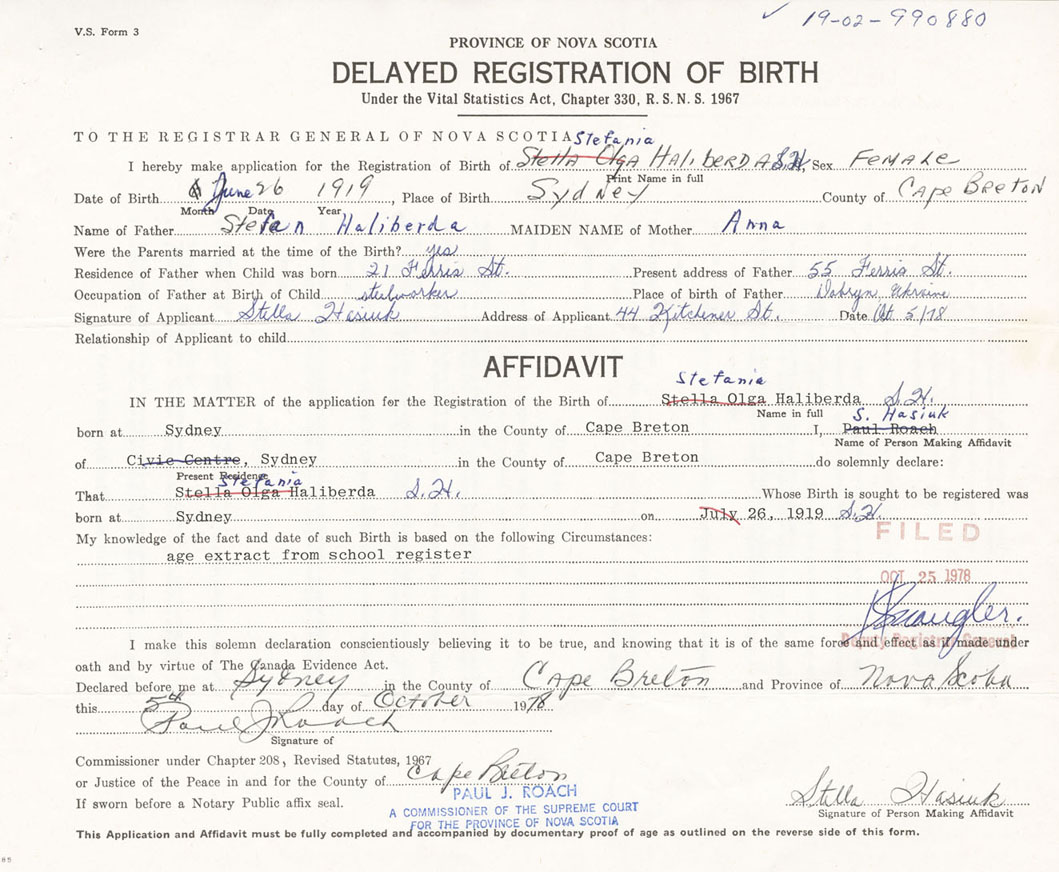 V.S. Form 3
✓ 19-02-990880
PROVINCE OF NOVA SCOTIA
DELAYED REGISTRATION OF BIRTH
Under the Vital Statistics Act, Chapter 330, R. S. N. S. 1967
TO THE REGISTRAR GENERAL OF NOVA SCOTIA
Stefania
I hereby make application for the Registration of Birth of Stella Olga HALIBERDA S.H., Sex FEMALE
Print Name in full
Date of Birth June 26 1919, Place of Birth Sydney County of CAPE BRETON
Month Date Year
Name of Father Stefan Haliberda MAIDEN NAME of Mother Anna
Were the Parents married at the time of the Birth? yes
Residence of Father when Child was born 21 Ferris St. Present address of Father 55 Ferris St.
Occupation of Father at Birth of Child steelworker Place of birth of Father Ukraine
Signature of Applicant Stella Hasiuk Address of Applicant 44 Kitchener St. Date Oct 5/78
Relationship of Applicant to child
AFFIDAVIT
Stefania
IN THE MATTER of the application for the Registration of the Birth of Stella Olga Haliberda S.H.
Name in full S. Hasiuk
born at Sydney in the County of Cape Breton I, Paul Roach
Name of Person Making Affidavit
of Civic Centre, Sydney in the County of Cape Breton do solemnly declare:
Present Residence
Stefania
That Stella Olga Haliberda S.H. Whose Birth is sought to be registered was
born at Sydney on July 26, 1919 S.H.
FILED
My knowledge of the fact and date of such Birth is based on the following Circumstances:
age extract from school register
OCT 25 1978
Deputy Registrar General
I make this solemn declaration conscientiously believing it to be true, and knowing that it is of the same force and effect as if made under
oath and by virtue of The Canada Evidence Act.
Declared before me at Sydney in the County of Cape Breton and Province of Nova Scotia
this 5th day of October 1978
Paul J Roach
Signature of
Commissioner under Chapter 208, Revised Statutes, 1967
or Justice of the Peace in and for the County of Cape Breton
PAUL J. ROACH
If sworn before a Notary Public affix seal.
A COMMISSIONER OF THE SUPREME COURT
FOR THE PROVINCE OF NOVA SCOTIA
Stella Hasiuk
Signature of Person Making Affidavit
This Application and Affidavit must be fully completed and accompanied by documentary proof of age as outlined on the reverse side of this form.
85